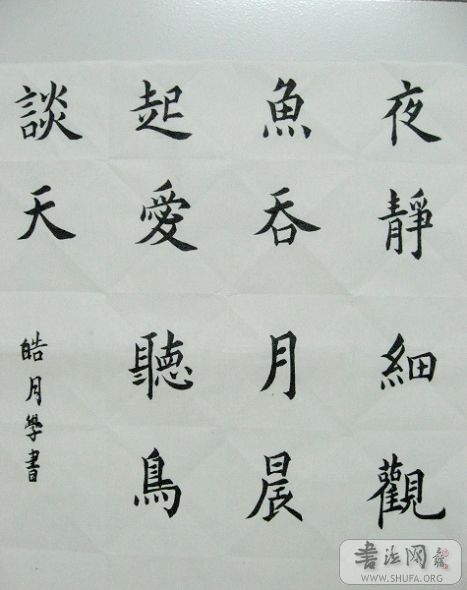 夜靜細觀
魚吞月晨
起愛聽鳥
談天
皓月學書
書法网
WWW.SHUFA.ORG